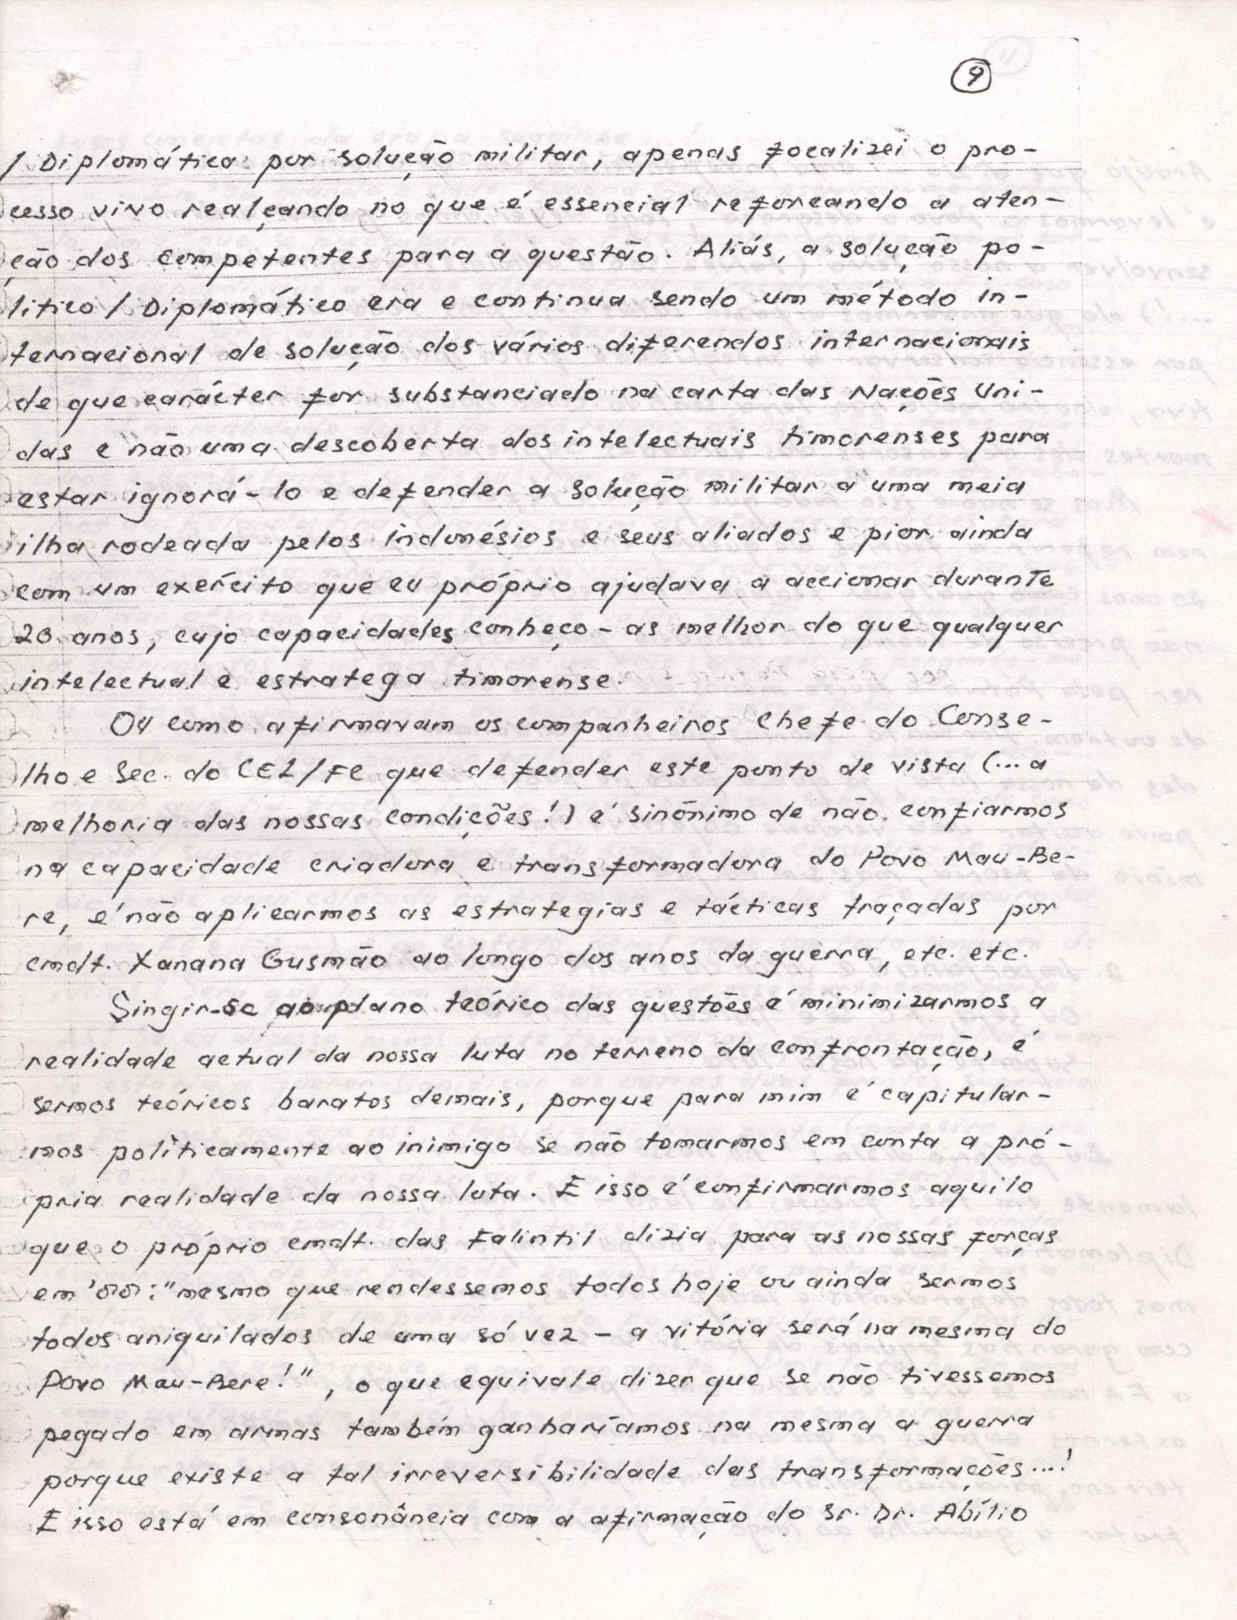 9
/ Diplomática por solução militar, apenas focalizei o pro-
cesso vivo realçando no que é essencial reforcando a aten-
ção dos competentes para a questão. Aliás, a solução po-
litico / Diplomático era e continua sendo um método in-
ternacional de solução dos vários diferendos internacionais
de que carácter for substanciado na carta das Nações Uni-
das e não uma descoberta dos intelectuais timorenses para
estar ignorá-lo e defender a solução militar a uma meia
ilha rodeada pelos indonésios e seus aliados e pior ainda
com um exercito que eu próprio ajudava a accionar durante
20 anos, cujo capacidades conheço-as melhor do que qualquer
intelectual e estratega timorense.
Ou como afirmavam os companheiros Chefe do Conse-
lho e Sec. do CEL/FE que defender este ponto de vista (... a
melhoria das nossas condições!) é sinónimo de não confiarmos
na capacidade criadora e transformadora do Povo Mau-Be-
re, é não aplicarmos as estrategias e tácticas traçadas por
cmdt. Xanana Gusmão ao longo dos anos da guerra, etc. etc.
Singir-se ao plano teórico das questões é minimizarmos a
realidade actual da nossa luta no terreno da confrontação, é
sermos teóricos baratos demais, porque para mim é capitular-
mos politicamente ao inimigo se não tomarmos em conta a pró-
pria realidade da nossa luta. E isso é confirmarmos aquilo
que o próprio cmdt. das Falintil dizia para as nossas forças
em '88: "mesmo que rendessemos todos hoje ou ainda sermos
todos aniquilados de uma só vez - a vitória será na mesma do
Povo Mau-Bere!", o que equivale dizer que se não tivessemos
pegado em armas também ganharíamos na mesma a guerra
porque existe a tal irreversibilidade das transformações...!
E isso está em consonância com a afirmação do Sr. Dr. Abílio